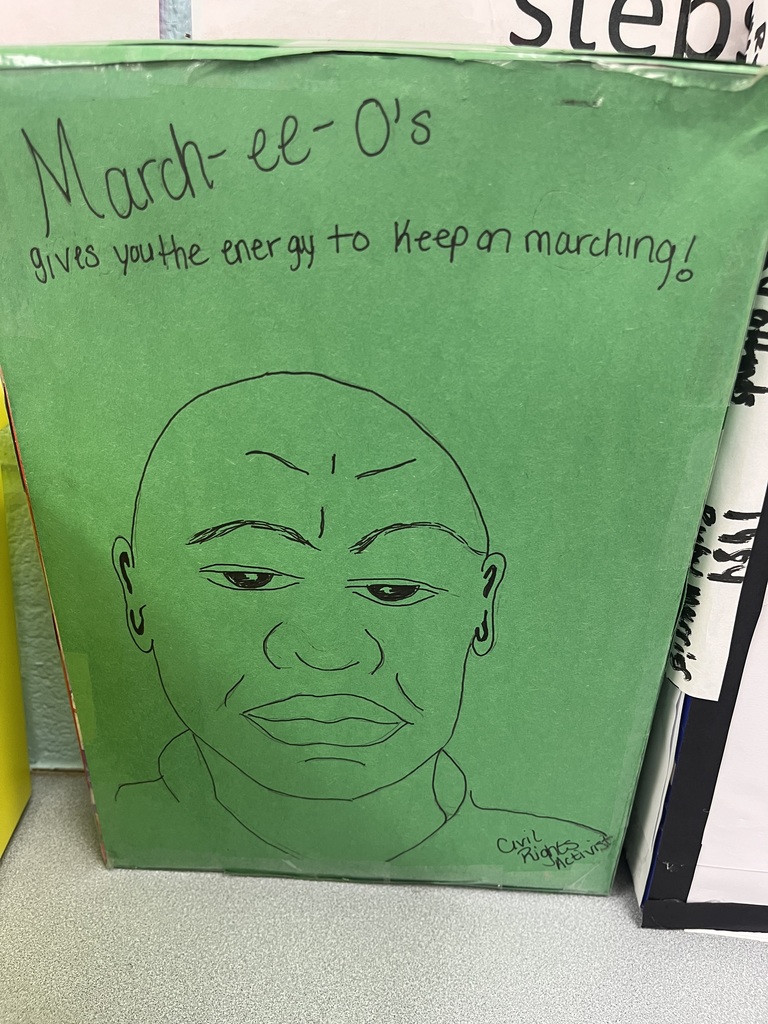 steps
March-ee-O's
gives you the energy to keep on marching!
Civil
Rights
Activist
1954